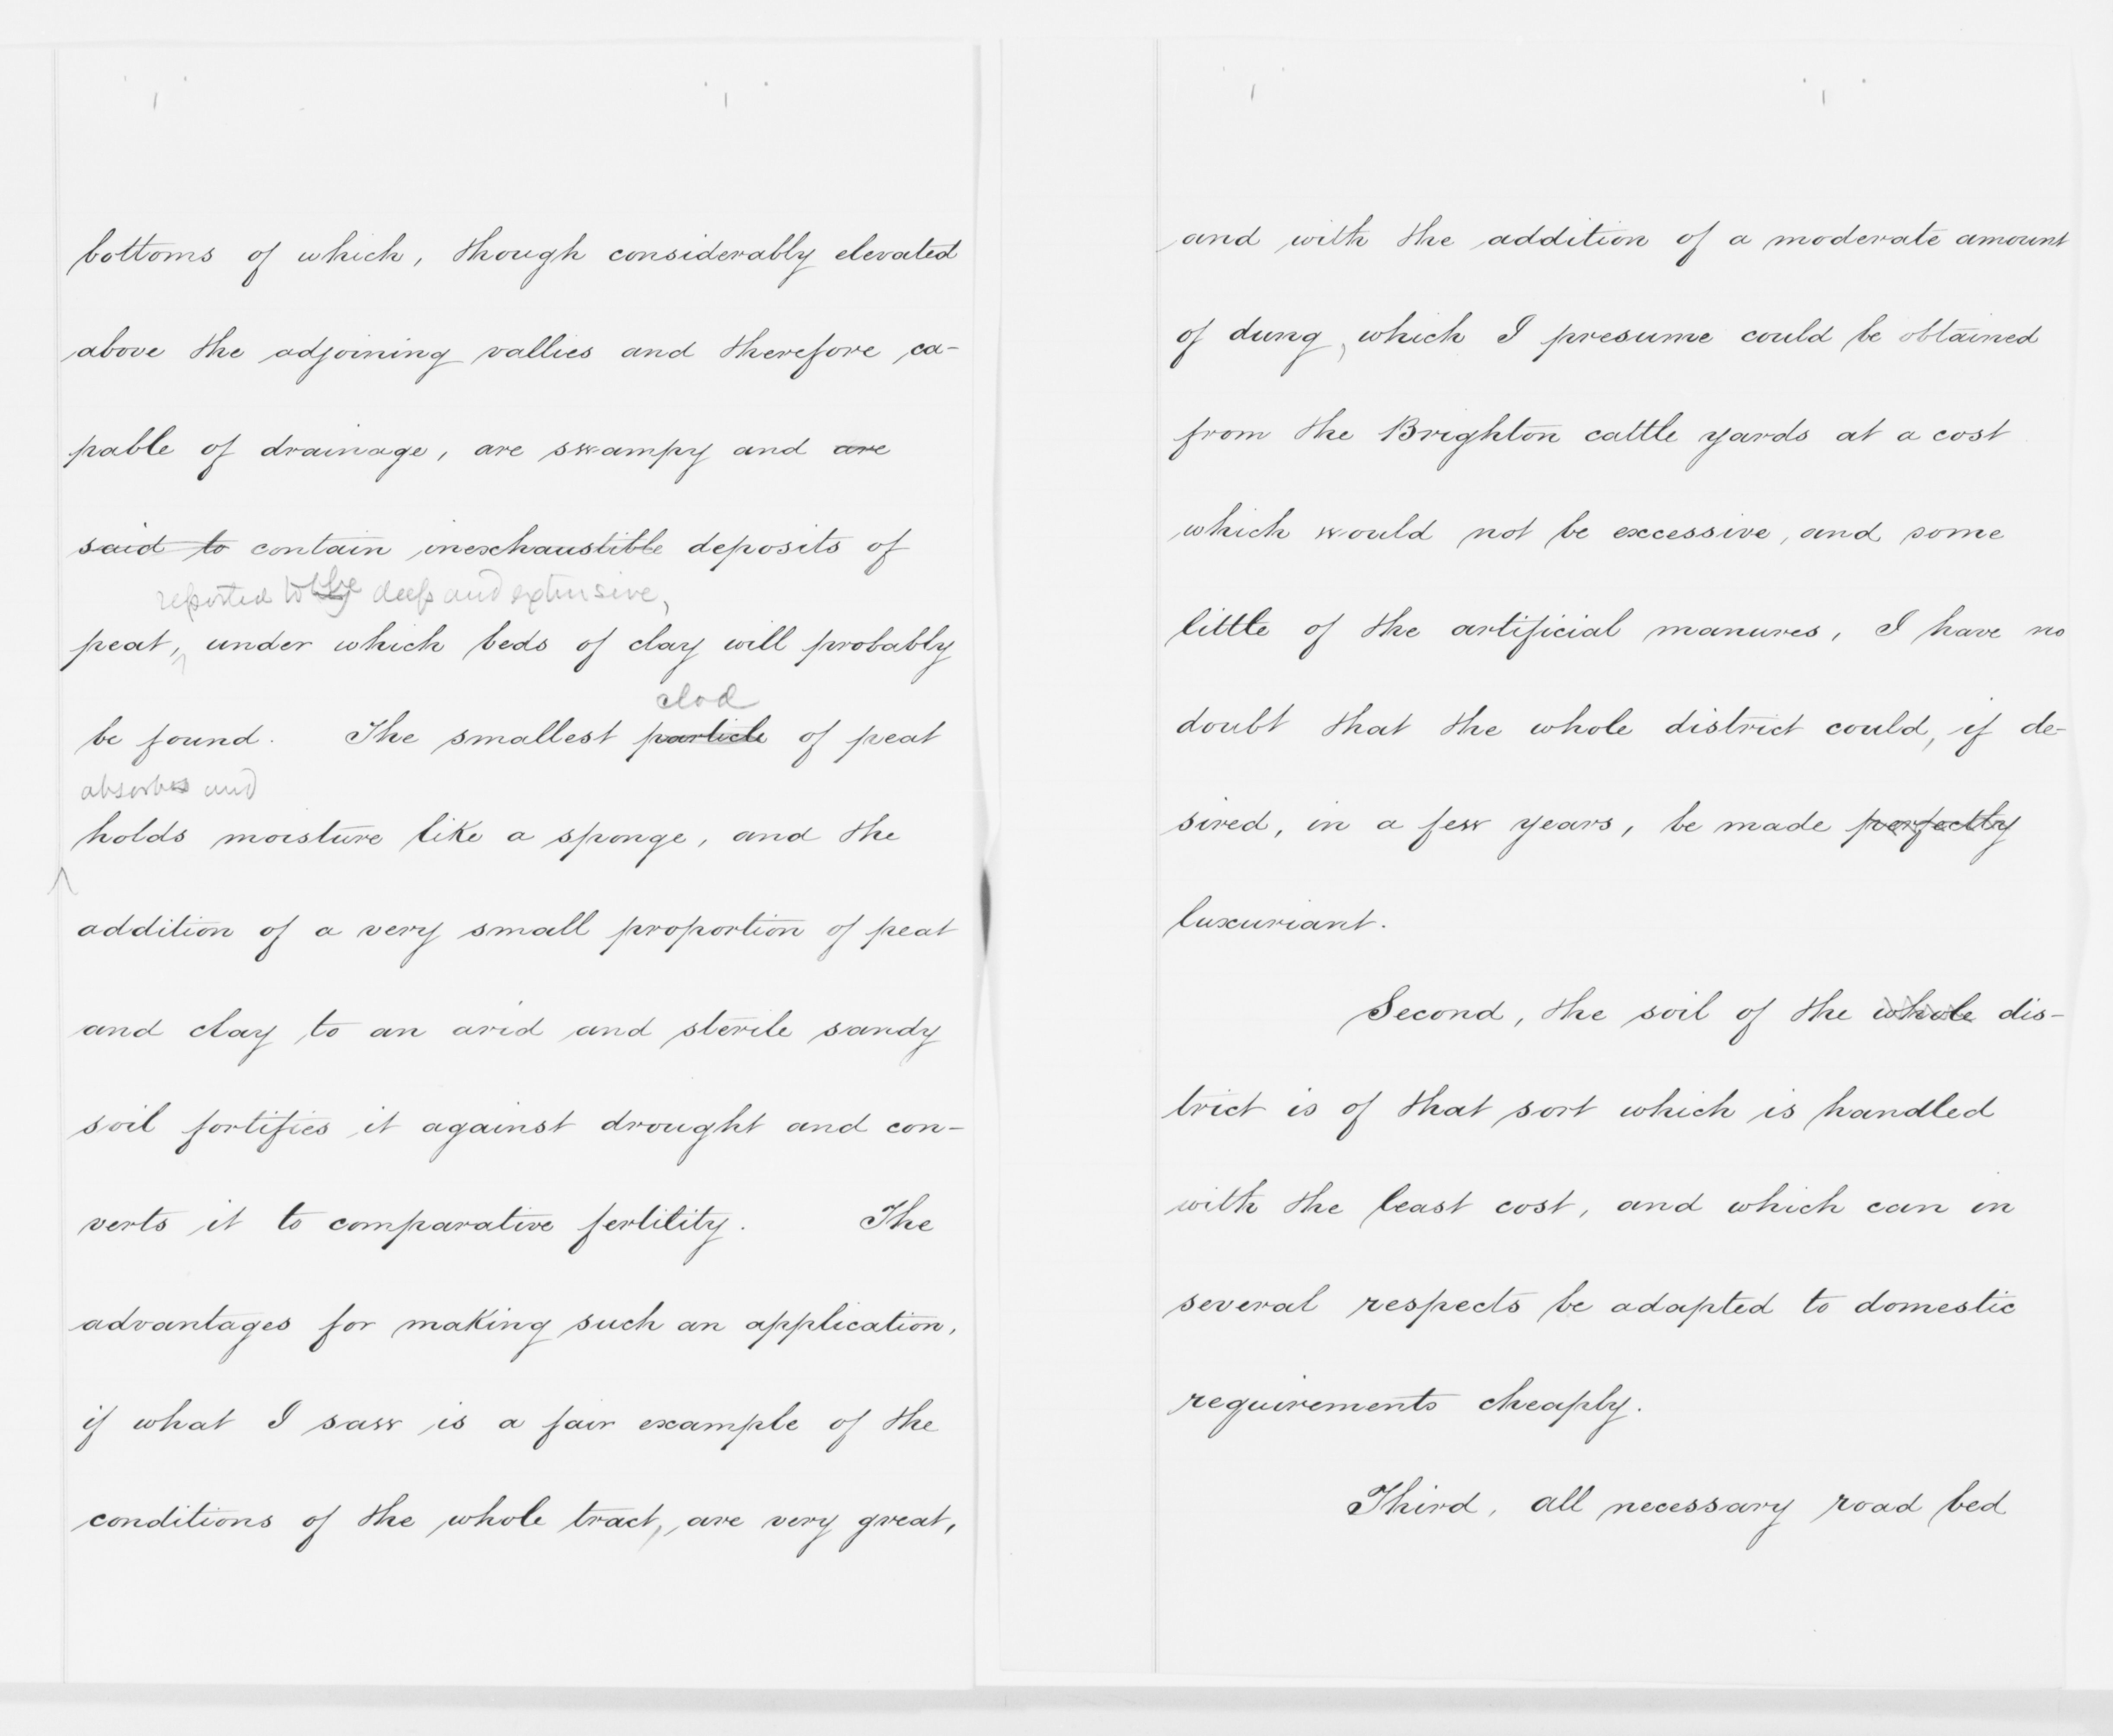 bottoms of which, though considerably elevated
above the adjoining vallies and therefore ca-
pable of drainage, are swampy and are
said to contain inexhaustible deposits of
reported to be deep and extensive,
peat, under which beds of clay will probably
clod
be found. The smallest particle of peat
absorbs and
holds moisture like a sponge, and the
addition of a very small proportion of peat
and clay to an arid and sterile sandy
soil fortifies it against drought and con-
verts it to comparative fertility. The
advantages for making such an application,
if what I saw is a fair example of the
conditions of the whole tract, are very great,
and with the addition of a moderate amount
of dung, which I presume could be obtained
from the Brighton cattle yards at a cost
which would not be excessive, and some
little of the artificial manures, I have no
doubt that the whole district could, if de-
sired, in a few years, be made perfectly
luxuriant.
Second, the soil of the whole dis-
trict is of that sort which is handled
with the least cost, and which can in
several respects be adapted to domestic
requirements cheaply.
Third, all necessary road bed